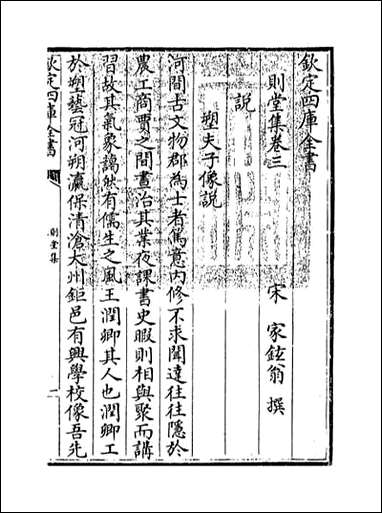 欽定四庫全書
則堂集卷三
宋 家鉉翁 撰
說
塑夫子像說
河間古文物郡為士者篤意内修不求聞達往往隱於
農工商賈之間晝治其業夜課書史暇則相與聚而講
習故其氣象藹然有儒生之風王潤卿其人也潤卿工
於塑藝冠河朔瀛保清滄大州鉅邑有興學校像吾先
欽定四庫全書
則堂集
一